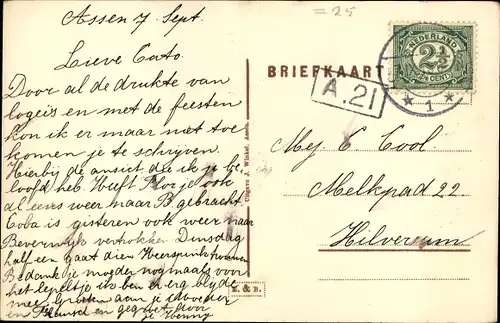 = 25
Assen 7 Sept.
Lieve Cato.
Door al de drukte van
logeis en met de feesten
kon ik er maar niet toe
komen je te schrijven.
Hierbij de ansicht die ik je be
loofd heb. Heeft Florje ook
al eens weer naar B gebracht
Coba is gisteren ook weer naar
Beverwijk vertrokken Dinsdag
half een gaat dien
Bedank je moeder nogmaals voor
het lepeltje ik ben er erg blyde
mee. Groeten aan je Moeder
en en gegroet door
je Jenny
Uitgave J. Winkel, Assen.
K. & B.
BRIEFKAART
A.21
NEDERLAND
2½
CENT
* 1 *
Mej C Cool.
Melkpad 22.
Hilversum